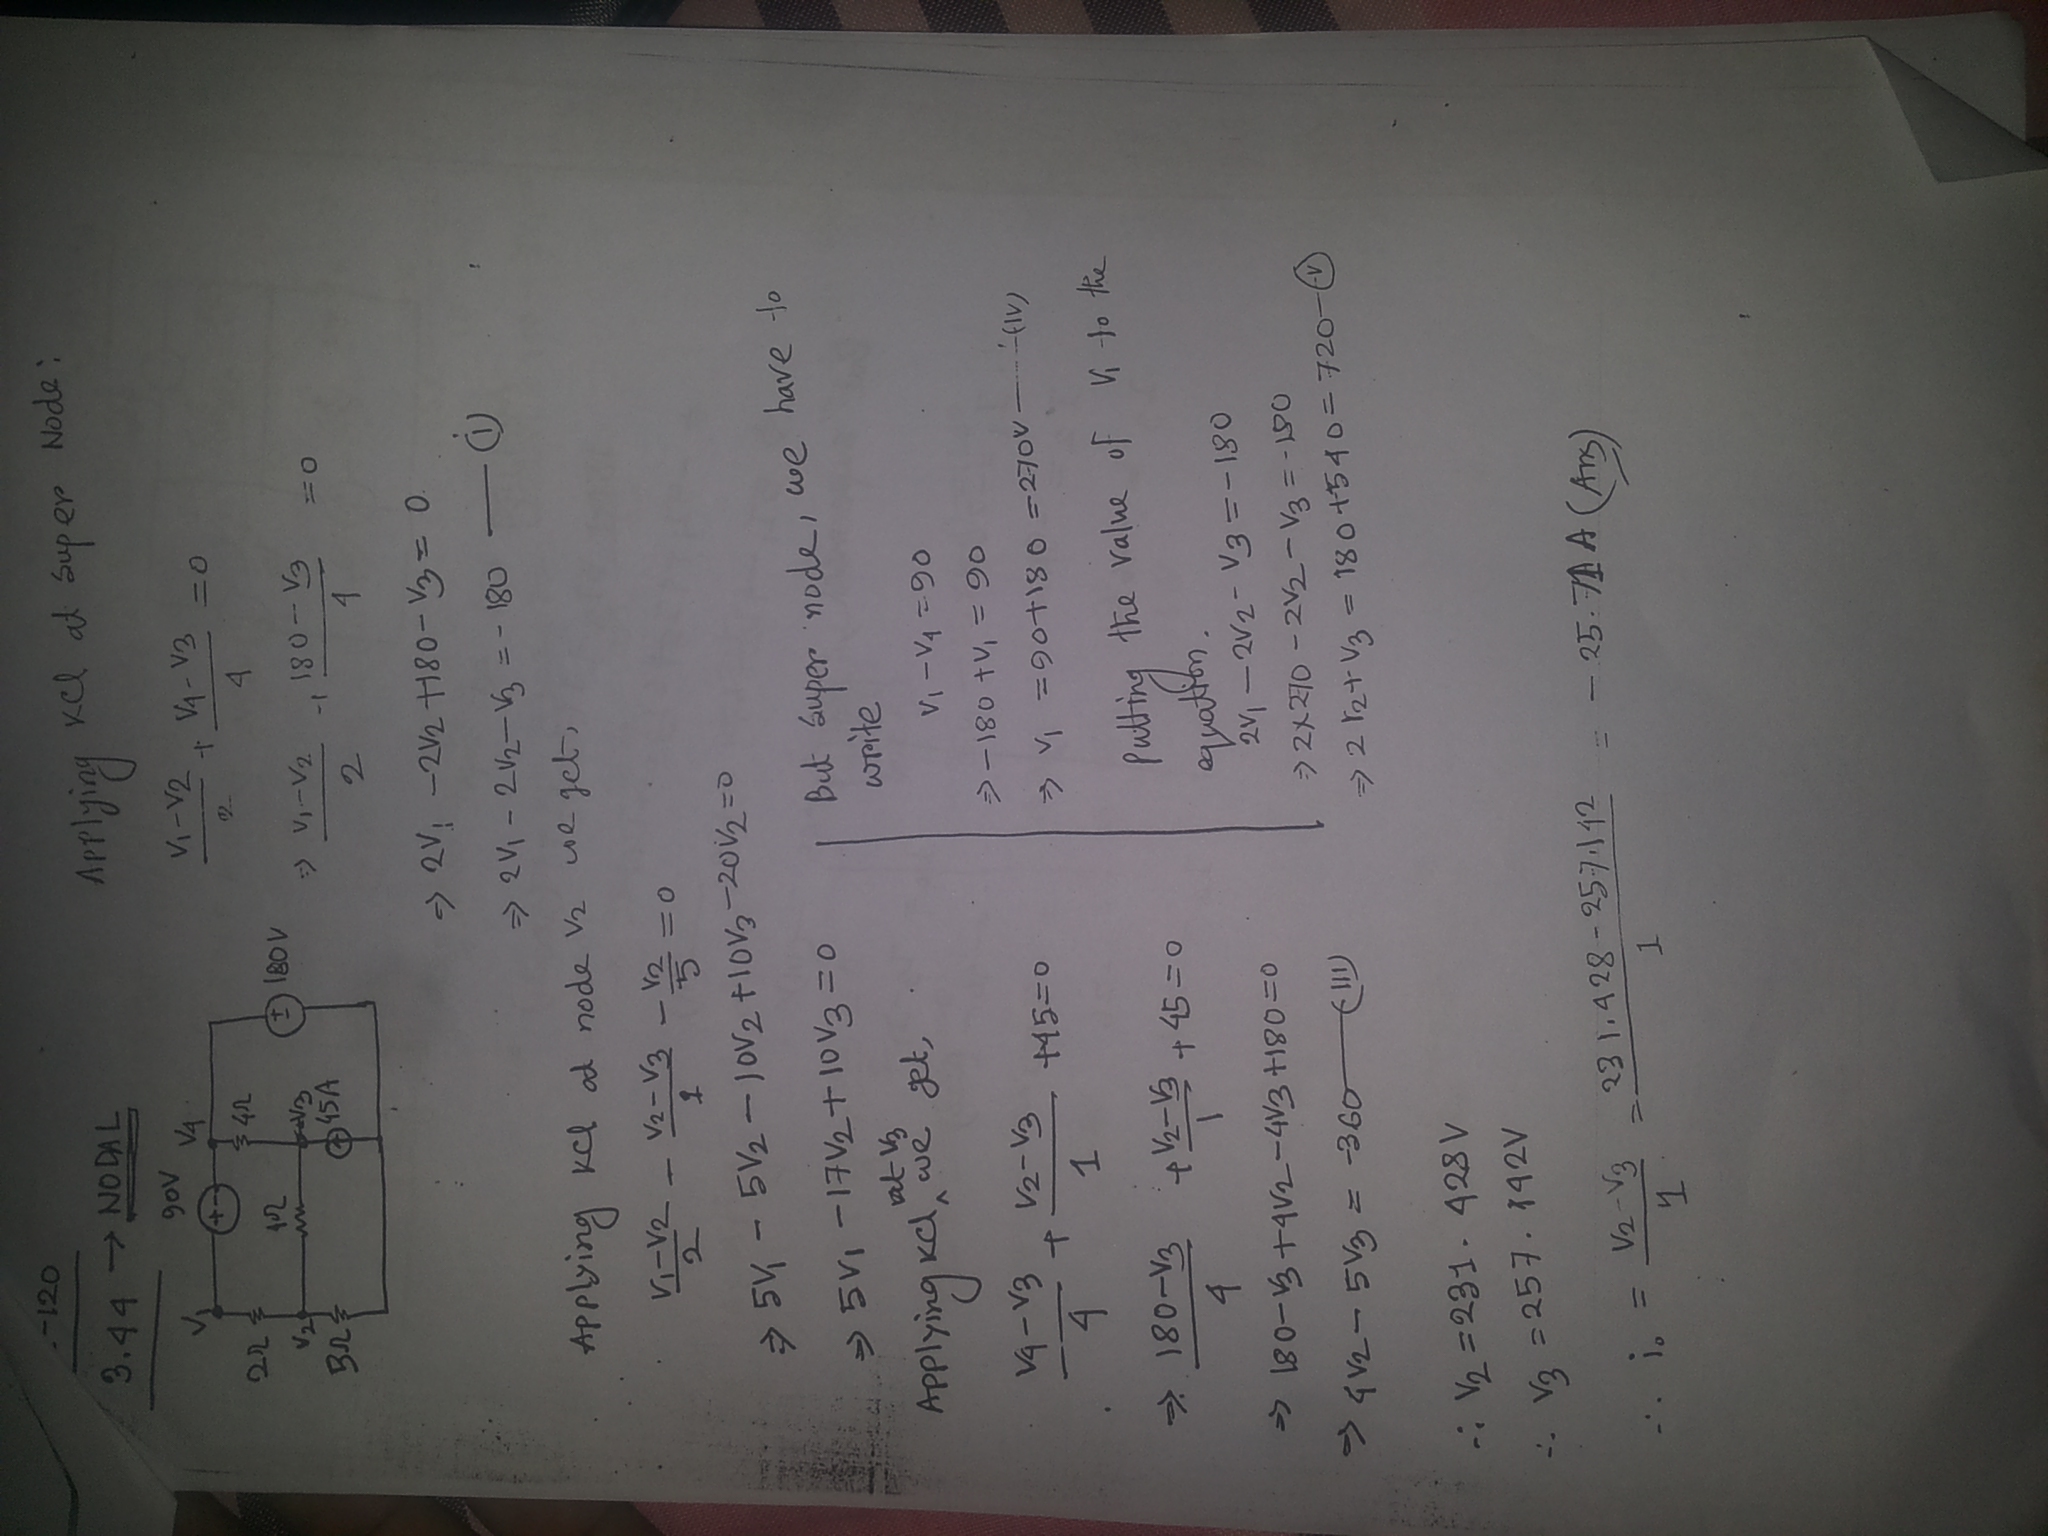 -120
3.44 → NODAL
90V
V1
V4
+ -
2Ω
4Ω
1Ω
180V
V2
V3
45A
5Ω
Applying KCl at super Node:
(V1-V2)/2 + (V4-V3)/4 = 0
⇒ (V1-V2)/2 + (180-V3)/4 = 0
⇒ 2V1 - 2V2 + 180 - V3 = 0
⇒ 2V1 - 2V2 - V3 = - 180 — (i)
Applying KCl at node V2 we get,
(V1-V2)/2 - (V2-V3)/1 - V2/5 = 0
⇒ 5V1 - 5V2 - 10V2 + 10V3 - 20V2 = 0
⇒ 5V1 - 17V2 + 10V3 = 0
Applying KCl at V3 we get,
(V4-V3)/4 + (V2-V3)/1 + 45 = 0
⇒ (180-V3)/4 + (V2-V3)/1 + 45 = 0
⇒ 180 - V3 + 4V2 - 4V3 + 180 = 0
⇒ 4V2 - 5V3 = -360 — (III)
But super node, we have to
write
V1 - V4 = 90
⇒ -180 + V1 = 90
⇒ V1 = 90 + 180 = 270V — (IV)
Putting the value of V1 to the
equation.
2V1 - 2V2 - V3 = -180
⇒ 2×270 - 2V2 - V3 = -180
⇒ 2V2 + V3 = 180 + 540 = 720 — (V)
∴ V2 = 231.428V
∴ V3 = 257.142V
∴ io = (V2-V3)/1 = (231.428 - 257.142)/1 = - 25.71 A (Ans)